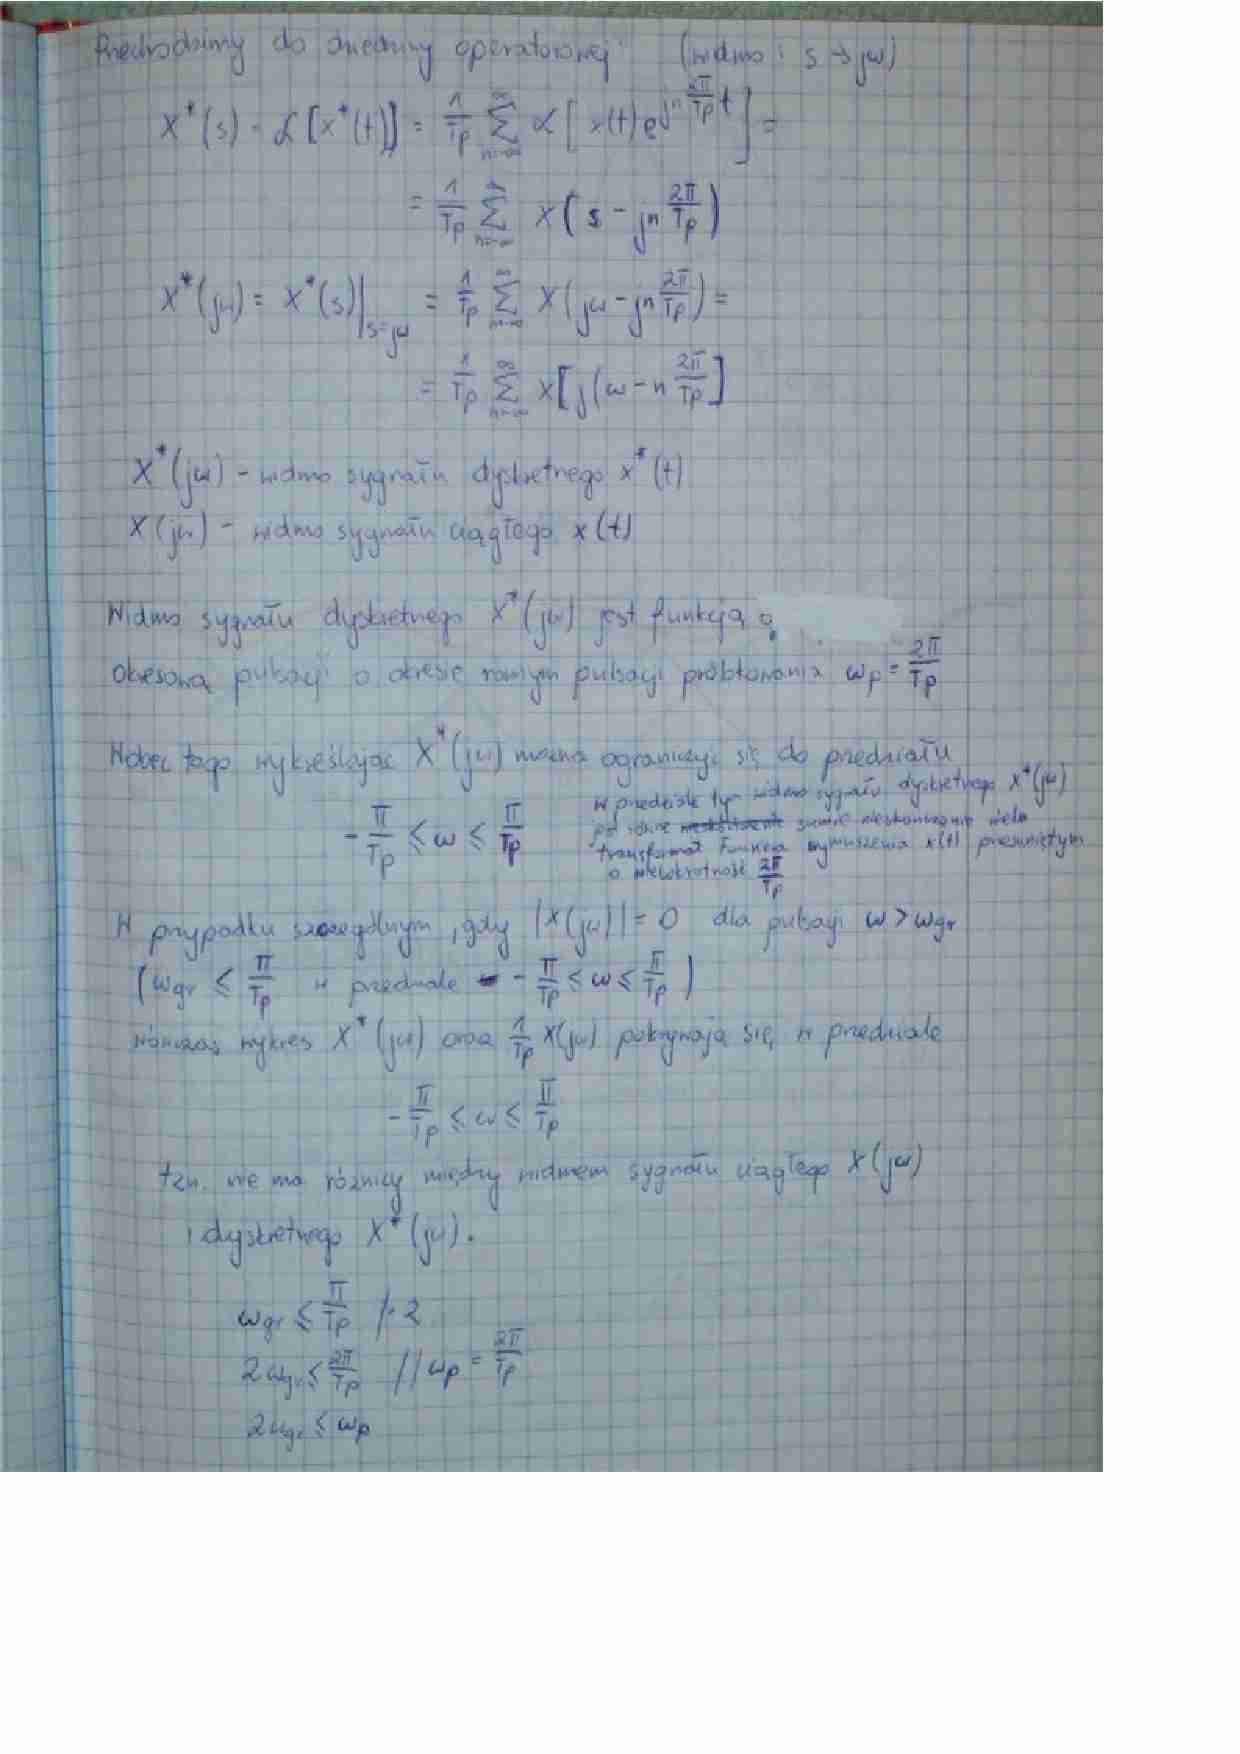 Przechodzimy do dziedziny operatorowej: (widmo: s → jω)
X*(s) = ℒ[x*(t)] = 1/Tp ∑ n=-∞ ∞ ℒ[x(t) e^{jn 2π/Tp t}] =
= 1/Tp ∑ n=-∞ ∞ X(s - jn 2π/Tp)
X*(jω) = X*(s)|s=jω = 1/Tp ∑ n=-∞ ∞ X(jω - jn 2π/Tp) =
= 1/Tp ∑ n=-∞ ∞ X[j(ω - n 2π/Tp]
X*(jω) - widmo sygnału dyskretnego x*(t)
X(jω) - widmo sygnału ciągłego x(t)
Widmo sygnału dyskretnego X*(jω) jest funkcją
okresową pulsacji o okresie równym pulsacji próbkowania ωp = 2π/Tp
Wobec tego wykreślając X*(jω) można ograniczyć się do przedziału
-π/Tp ≤ ω ≤ π/Tp
W przedziale tym widmo sygnału dyskretnego X*(jω)
sumie nieskończenie wielu
transformat Funkcja wymuszenia x(t) przesuniętym
o wielokrotność 2π/Tp
W przypadku szczególnym, gdy |X(jω)| = 0 dla pulsacji ω > ωgr
(ωgr ≤ π/Tp w przedziale -π/Tp ≤ ω ≤ π/Tp)
wówczas wykres X*(jω) oraz 1/Tp X(jω) pokrywają się w przedziale
-π/Tp ≤ ω ≤ π/Tp
tzn. nie ma różnicy między widmem sygnału ciągłego X(jω)
i dyskretnego X*(jω).
ωgr ≤ π/Tp /·2
2ωgr ≤ 2π/Tp // ωp = 2π/Tp
2ωgr ≤ ωp